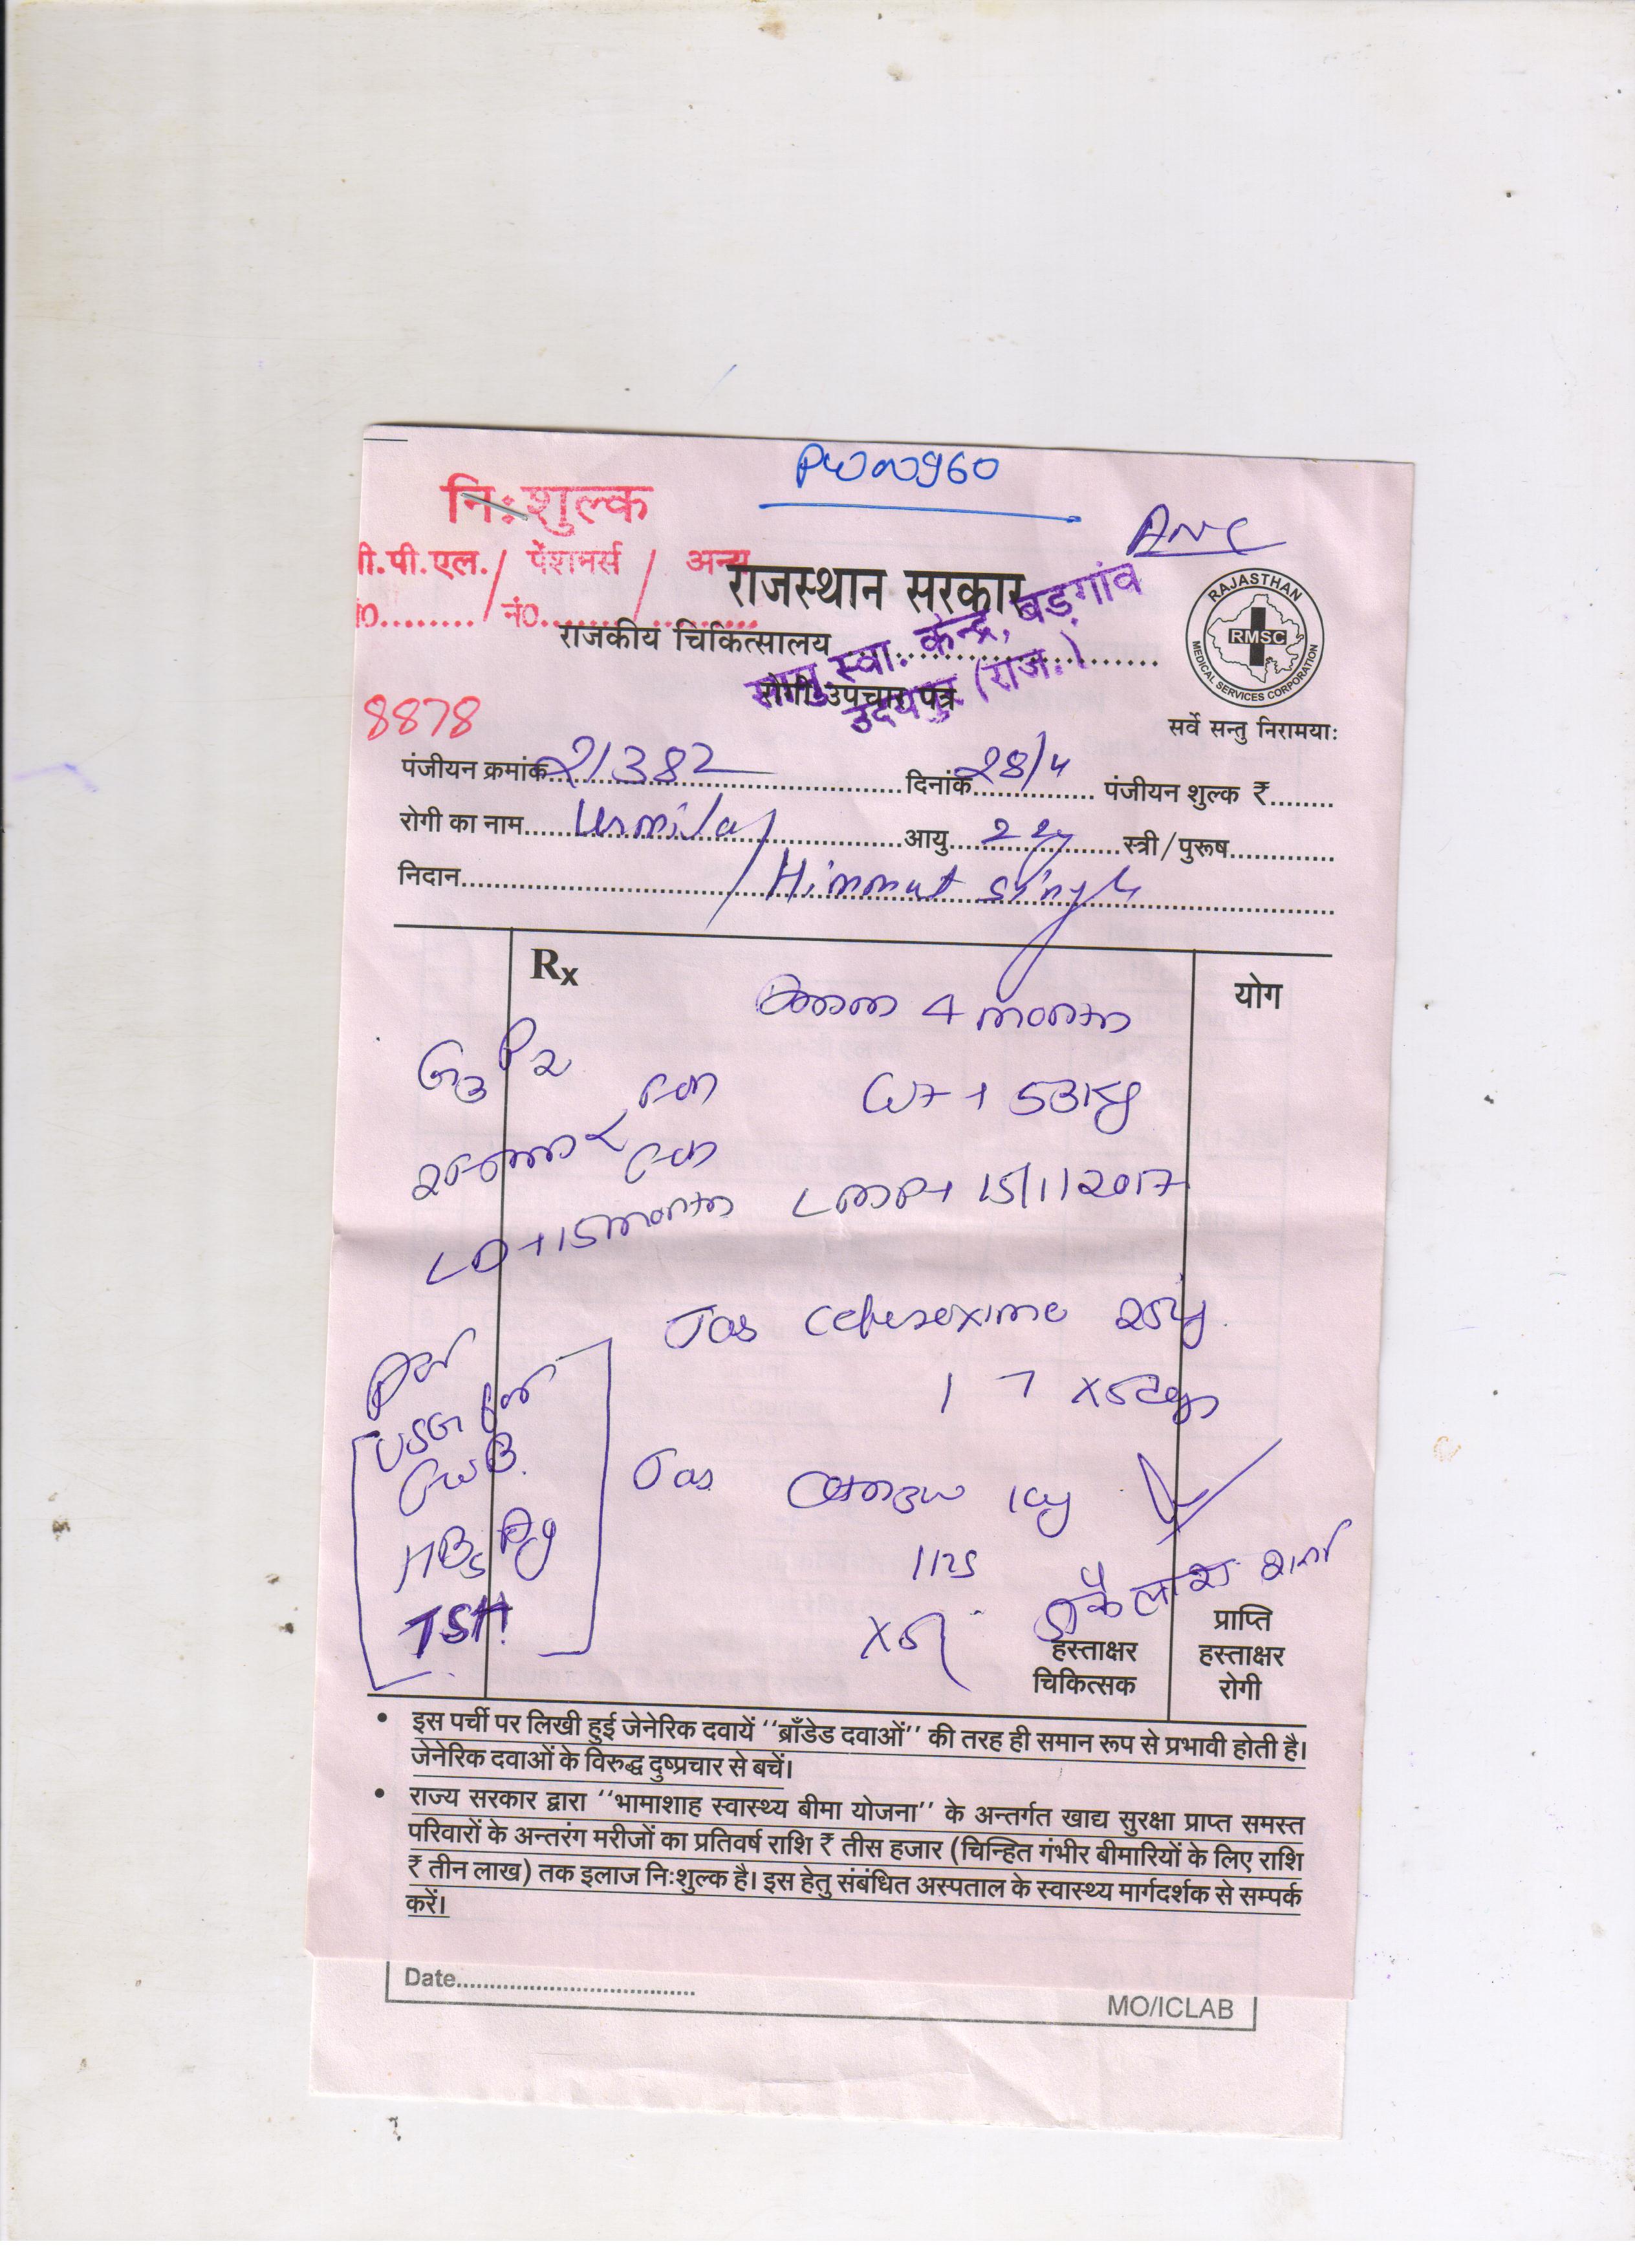 PW00960
ANC
नि:शुल्क
पी.पी.एल./ पेंशनर्स / अन्य
नं०......../ नं०......./........
राजस्थान सरकार
राजकीय चिकित्सालय
स्वा. केन्द्र, बड़गांव
उदयपुर (राज.)
रोगी उपचार पत्र
RAJASTHAN
RMSC
MEDICAL SERVICES CORPORATION
सर्वे सन्तु निरामयाः
8878
पंजीयन क्रमांक 21382 दिनांक 28/4 पंजीयन शुल्क ₹........
रोगी का नाम Urmila / आयु 22y स्त्री/पुरूष
निदान / Himmat Singh
Rx
योग
4 month
G3 P2
Wt + 53kg
LMP + 15/1/2017
LD + 15 month
Tab Cefuroxime 250mg
1 7 x 5 days
USG for
FWB.
HBsAg
TSH
Tab
x 5
कैलाश शर्मा
हस्ताक्षर
चिकित्सक
प्राप्ति
हस्ताक्षर
रोगी
• इस पर्ची पर लिखी हुई जेनेरिक दवायें ‘‘ब्राँडेड दवाओं’’ की तरह ही समान रूप से प्रभावी होती है।
जेनेरिक दवाओं के विरुद्ध दुष्प्रचार से बचें।
• राज्य सरकार द्वारा ‘‘भामाशाह स्वास्थ्य बीमा योजना’’ के अन्तर्गत खाद्य सुरक्षा प्राप्त समस्त
परिवारों के अन्तरंग मरीजों का प्रतिवर्ष राशि ₹ तीस हजार (चिन्हित गंभीर बीमारियों के लिए राशि
₹ तीन लाख) तक इलाज निःशुल्क है। इस हेतु संबंधित अस्पताल के स्वास्थ्य मार्गदर्शक से सम्पर्क
करें।
Date....................................
MO/ICLAB